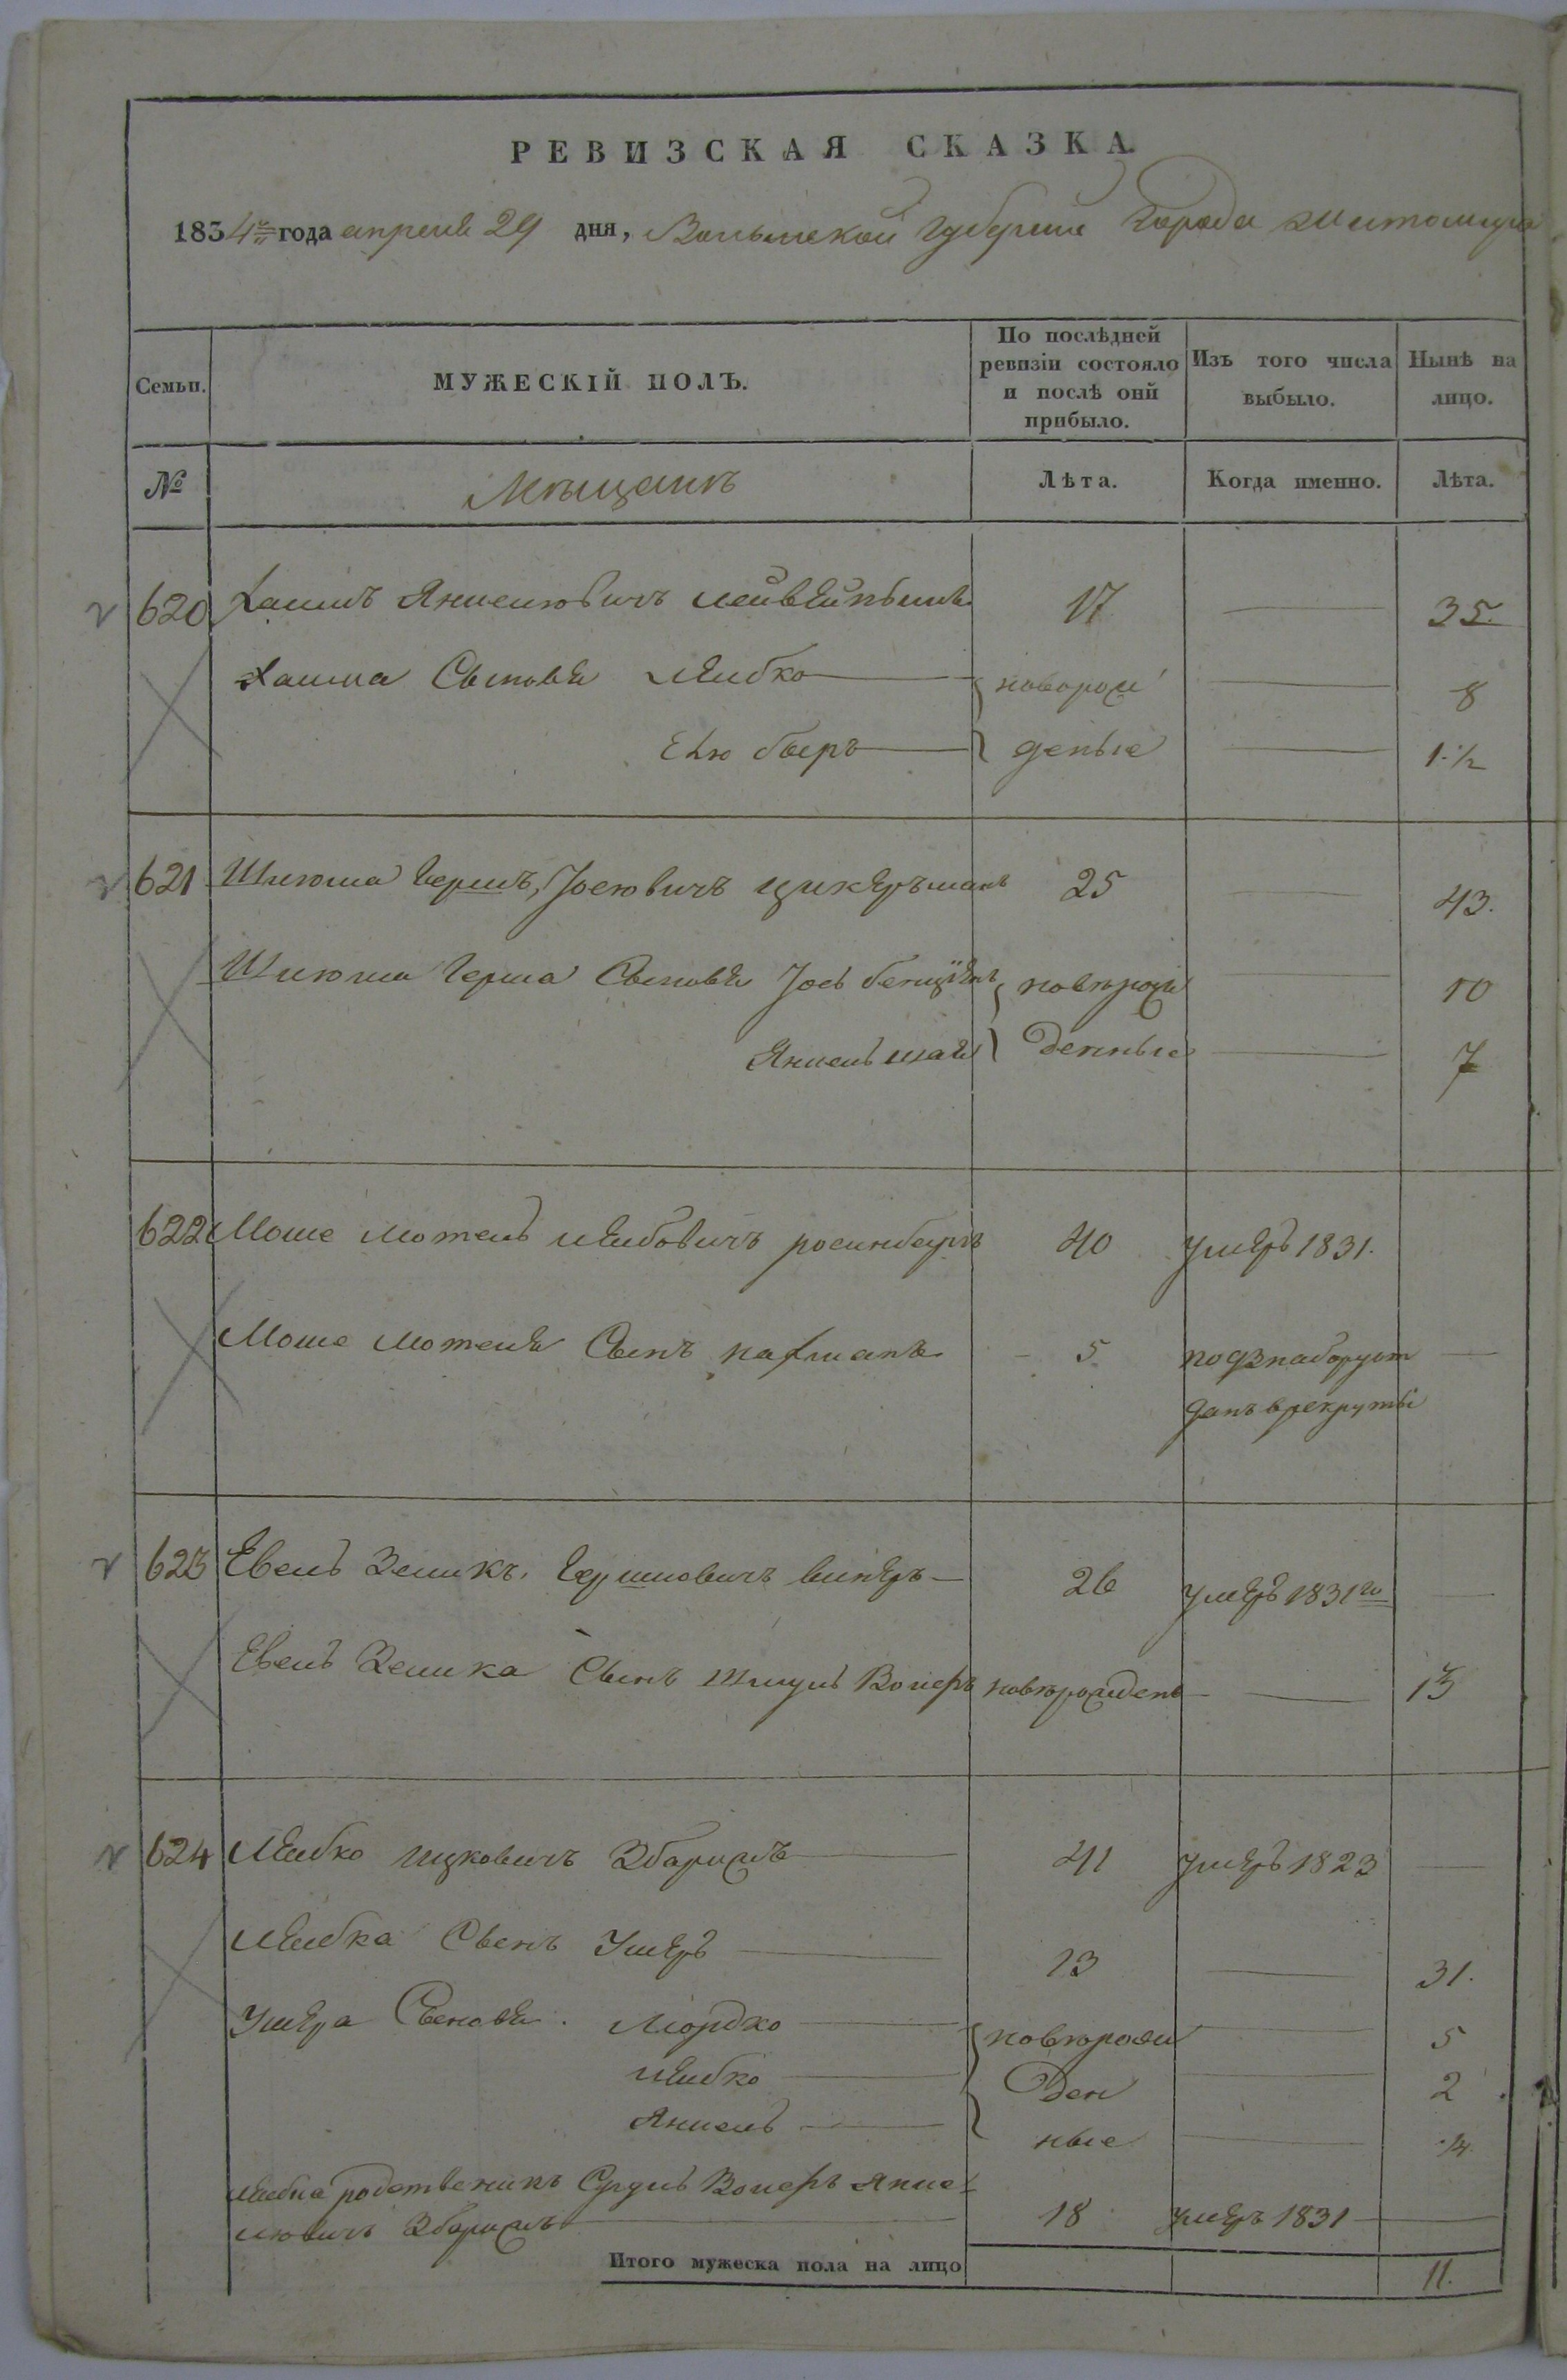 РЕВИЗСКАЯ СКАЗКА.
1834го года апреля 29 дня, Волынской Губернии Города Житомира
Семьи.
МУЖЕСКІЙ ПОЛЪ.
По послѣдней ревизіи состояло и послѣ оной прибыло.
Изъ того числа выбыло.
Нынѣ на лицо.
№
Мѣщанъ
Лѣта.
Когда именно.
Лѣта.
620 Хаимъ Янкелювичъ 17 — 35.
Хаима Сыновья Лейбко — новорож 8
Елю беръ — деные 1 ½
621 Шлюма Гершъ, Іосювичъ Цукерманъ 25 — 43.
Шлюма Герша Сыновья Іось новорож 10
Янкель денные 7
622 Моше Мотель Лейбовичъ росинбергъ 40 умеръ 1831.
Моше Мотеля Сынъ нахманъ 5 —
данъ в рекруты
623 Евель Зеликъ Гершковичъ 26 умеръ 1831го —
Евель Зелика Сынъ Шмуль Волфъ новорожденъ — 13
624 Лейбко Ицковичъ Збаражъ 41 умеръ 1823 —
Лейбка Сынъ Ушеръ — 13 — 31.
Ушера Сыновья. Мордко — новорож — 5
Лейбко — ден — 2
Янкель — ные —
Лейбка родственикъ Сруль Волфъ Янке=
лювичъ Збаражъ — 18 умеръ 1831 —
Итого мужеска пола на лицо 11.